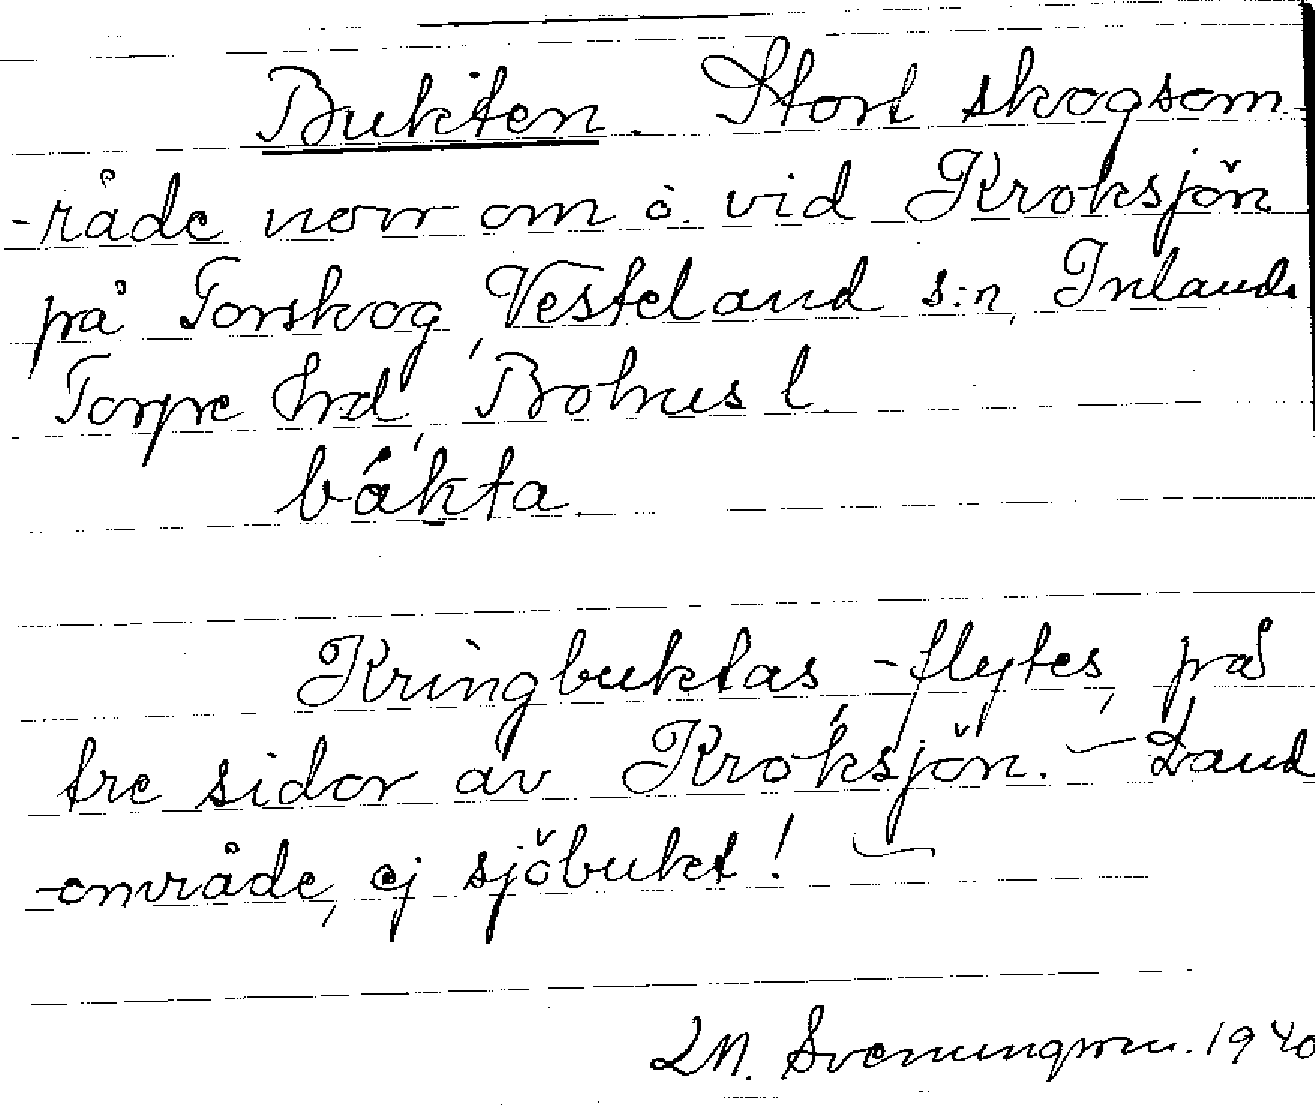 Bukten. Stort skogsom-
-råde norr om o. vid Kroksjön
på Torskog, Vesteland s:n, Inlands
Torpe hrd, Bohus l.
båkta.
Kringbuktas, -flytes, på
tre sidor av Kroksjön. – Land
-område, ej sjöbukt!
1940